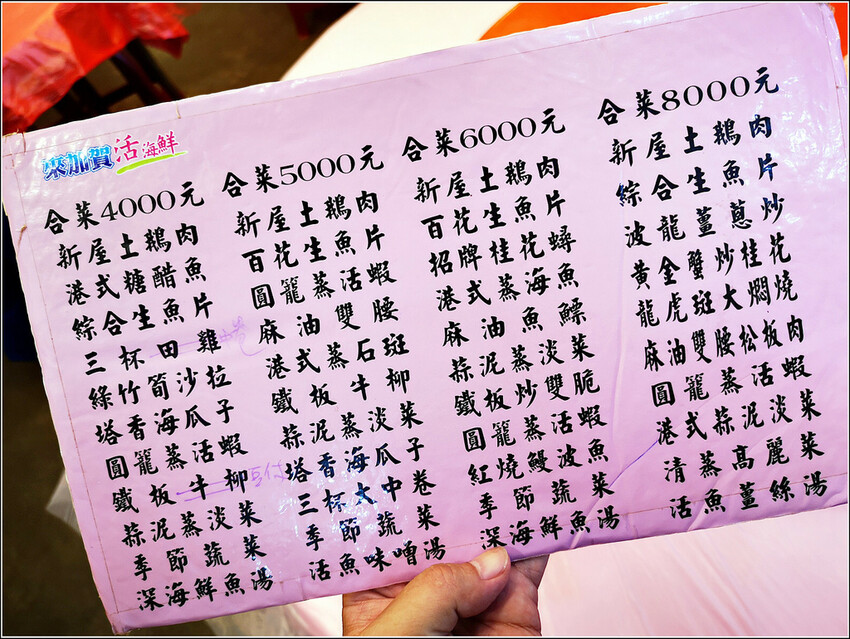 來加賀活海鮮
合菜4000元
新屋土鵝肉
港式糖醋魚
綜合生魚片
三杯田雞
綠竹筍沙拉
塔香海瓜子
圓籠蒸活蝦
鐵板牛柳
蒜泥蒸淡菜
季節蔬菜
深海鮮魚湯
合菜5000元
新屋土鵝肉
百花生魚片
圓籠蒸活蝦
麻油雙腰
港式蒸石斑
鐵板牛柳
蒜泥蒸淡菜
塔香海瓜子
三杯大中卷
季節蔬菜
活魚味噌湯
合菜6000元
新屋土鵝肉
百花生魚片
招牌桂花蟳
港式蒸海魚
麻油魚鰾
蒜泥蒸淡菜
鐵板炒雙脆
圓籠蒸活蝦
紅燒鰻波魚
季節蔬菜
深海鮮魚湯
合菜8000元
新屋土鵝肉
綜合生魚片
波龍薑蔥炒
黃金蟹炒桂花
龍虎斑大燜燒
麻油雙腰松板肉
圓籠蒸活蝦
港式蒜泥淡菜
清蒸高麗菜
活魚薑絲湯